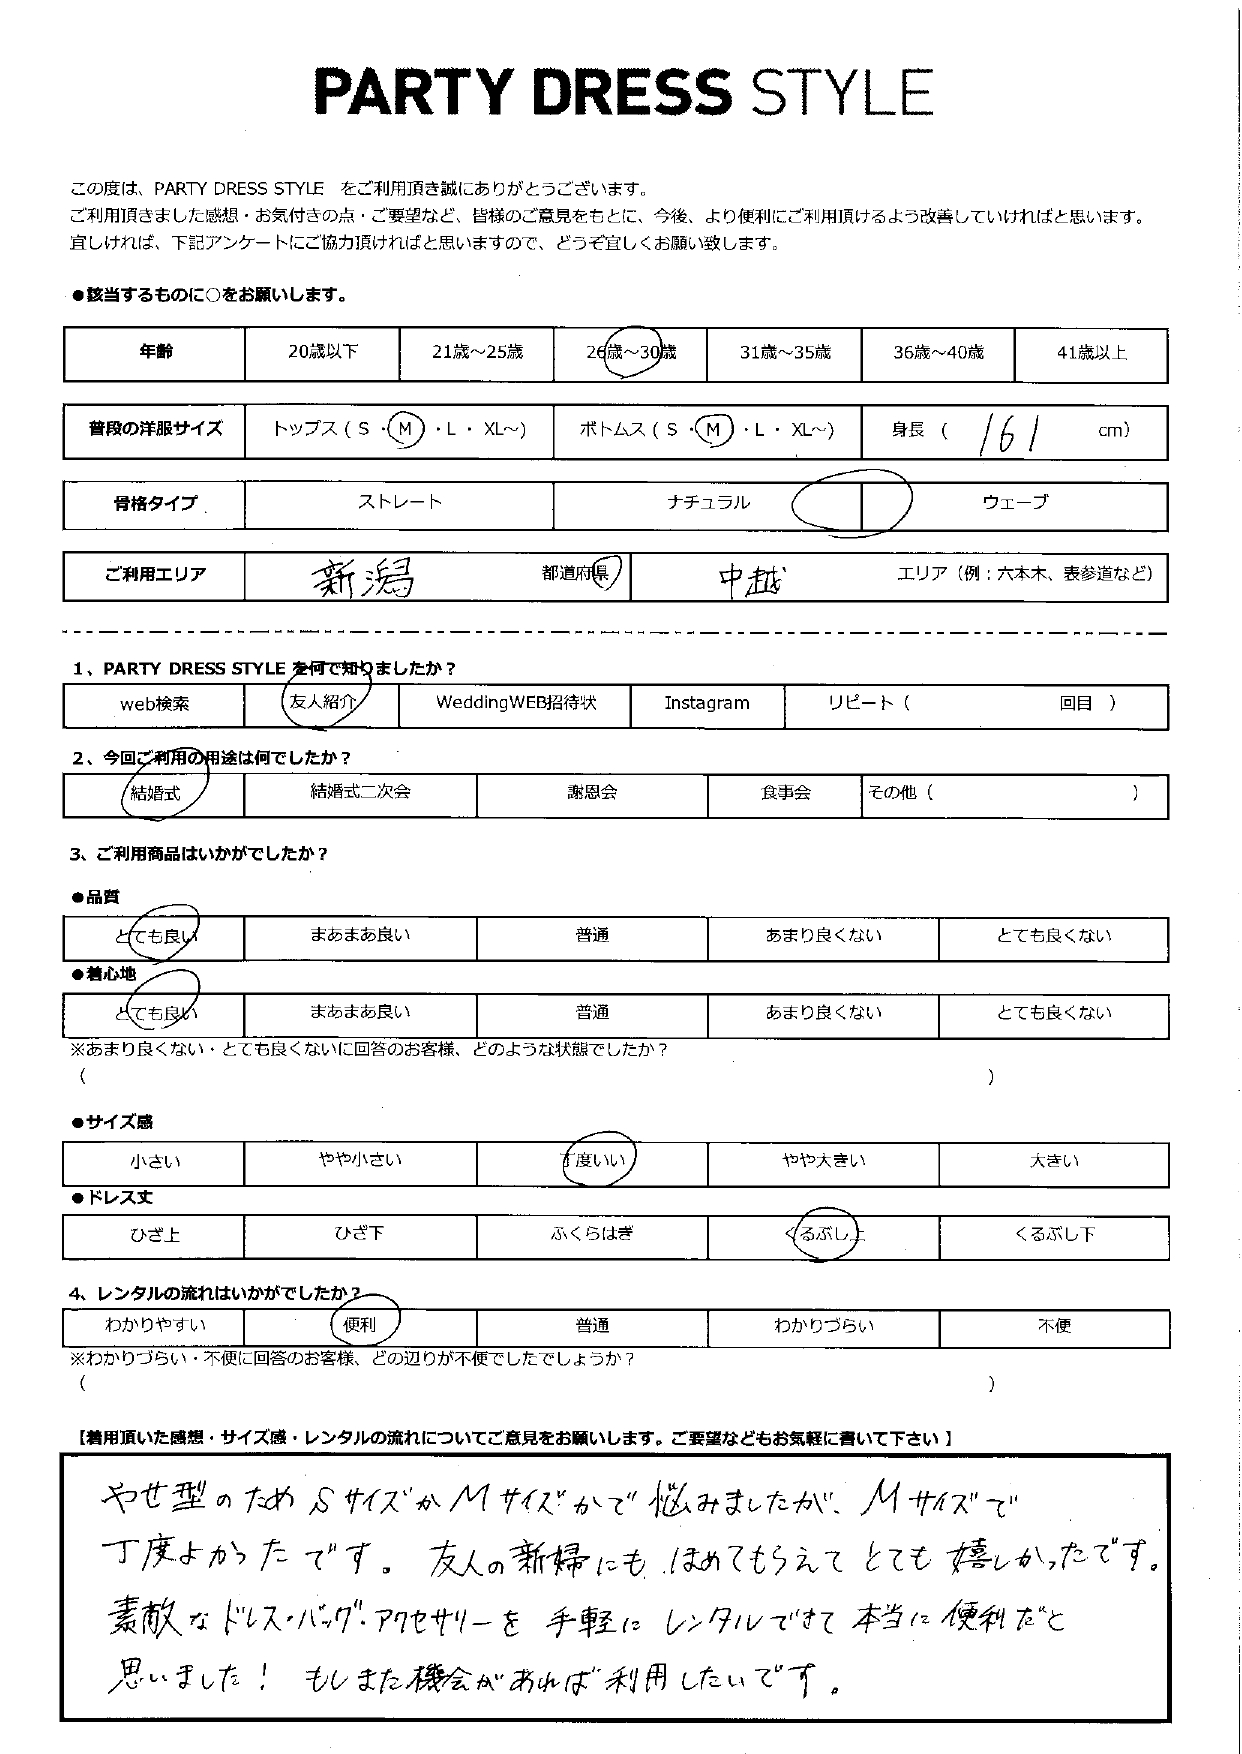 PARTY DRESS STYLE
この度は、PARTY DRESS STYLE をご利用頂き誠にありがとうございます。
ご利用頂きました感想・お気付きの点・ご要望など、皆様のご意見をもとに、今後、より便利にご利用頂けるよう改善していければと思います。
宜しければ、下記アンケートにご協力頂ければと思いますので、どうぞ宜しくお願い致します。
●該当するものに○をお願いします。
年齢 20歳以下 21歳～25歳 26歳～30歳 31歳～35歳 36歳～40歳 41歳以上
普段の洋服サイズ トップス ( S ・ M ・ L ・ XL～) ボトムス ( S ・ M ・ L ・ XL～) 身長 ( 161 cm)
骨格タイプ ストレート ナチュラル ウェーブ
ご利用エリア 新潟 都道府県 中越 エリア（例：六本木、表参道など）
1、PARTY DRESS STYLE を何で知りましたか？
web検索 友人紹介 WeddingWEB招待状 Instagram リピート（ 回目 ）
2、今回ご利用の用途は何でしたか？
結婚式 結婚式二次会 謝恩会 食事会 その他（ ）
3、ご利用商品はいかがでしたか？
●品質
とても良い まあまあ良い 普通 あまり良くない とても良くない
●着心地
とても良い まあまあ良い 普通 あまり良くない とても良くない
※あまり良くない・とても良くないに回答のお客様、どのような状態でしたか？
（ ）
●サイズ感
小さい やや小さい 丁度いい やや大きい 大きい
●ドレス丈
ひざ上 ひざ下 ふくらはぎ くるぶし上 くるぶし下
4、レンタルの流れはいかがでしたか？
わかりやすい 便利 普通 わかりづらい 不便
※わかりづらい・不便に回答のお客様、どの辺りが不便でしたでしょうか？
（ ）
【着用頂いた感想・サイズ感・レンタルの流れについてご意見をお願いします。ご要望などもお気軽に書いて下さい】
やせ型のため SサイズかMサイズかで悩みましたが、Mサイズで
丁度よかったです。友人の新婦にもほめてもらえてとても嬉しかったです。
素敵なドレス・バッグ・アクセサリーを手軽にレンタルできて本当に便利だと
思いました！もしまた機会があれば利用したいです。